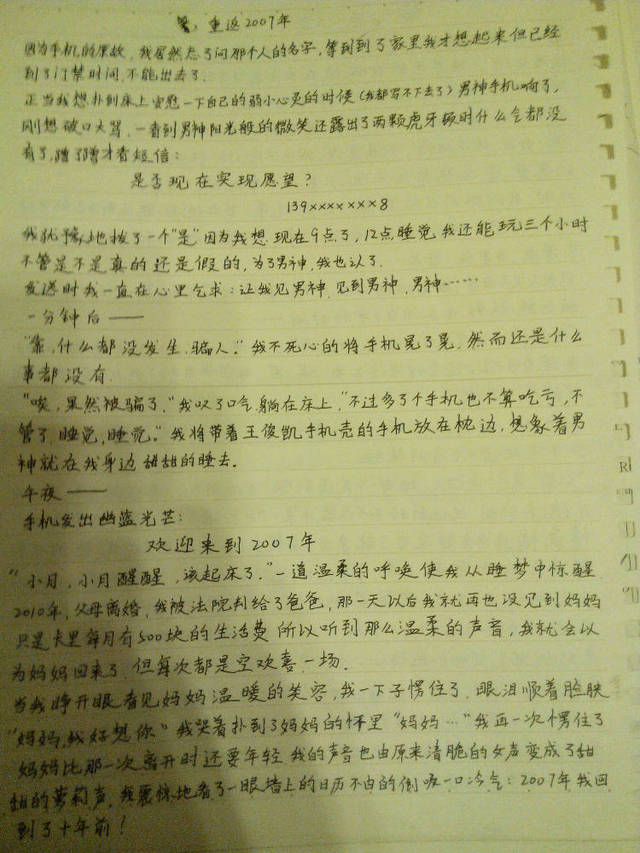 重返2007年
因为手机的原故，我居然忘了问那个人的名字，等到到了家里我才想起来但已经
到了门禁时间，不能出去了.
正当我想扑到床上安慰一下自己的弱小心灵的时候（我都写不下去了）男神手机响了，
刚想破口大骂，一看到男神阳光般的微笑还露出了两颗虎牙顿时什么气都没
有了，蹭了蹭才看短信：
是否现在实现愿望？
139×××××××8
我犹豫地拨了一个“是”因为我想现在9点了，12点睡觉我还能玩三个小时
不管是不是真的还是假的，为了男神，我也认了.
发送时我一直在心里乞求：让我见男神，见到男神，男神……
一分钟后——
“靠，什么都没发生，骗人。”我不死心的将手机晃了晃，然而还是什么
事都没有.
“唉，果然被骗了。”我叹了口气，躺在床上，“不过多了个手机也不算吃亏，不
管了，睡觉，睡觉。”我将带着王俊凯手机壳的手机放在枕边，想象着男
神就在我身边甜甜的睡去。
午夜——
手机发出幽蓝光芒：
欢迎来到2007年
“小月，小月醒醒，该起床了。”一道温柔的呼唤使我从睡梦中惊醒
2010年，父母离婚，我被法院判给了爸爸，那一天以后我就再也没见到妈妈
只是卡里每月有500块的生活费所以听到那么温柔的声音，我就会以
为妈妈回来了，但每次都是空欢喜一场.
当我睁开眼看见妈妈温暖的笑容，我一下子愣住了，眼泪顺着脸
“妈妈，我好想你”我哭着扑到了妈妈的怀里“妈妈…”我再一次愣住了
妈妈比那一次离开时还要年轻我的声音也由原来清脆的女声变成了甜
甜的萝莉声，我震惊地看了一眼墙上的日历不由的倒吸一口冷气：2007年我回
到了十年前！